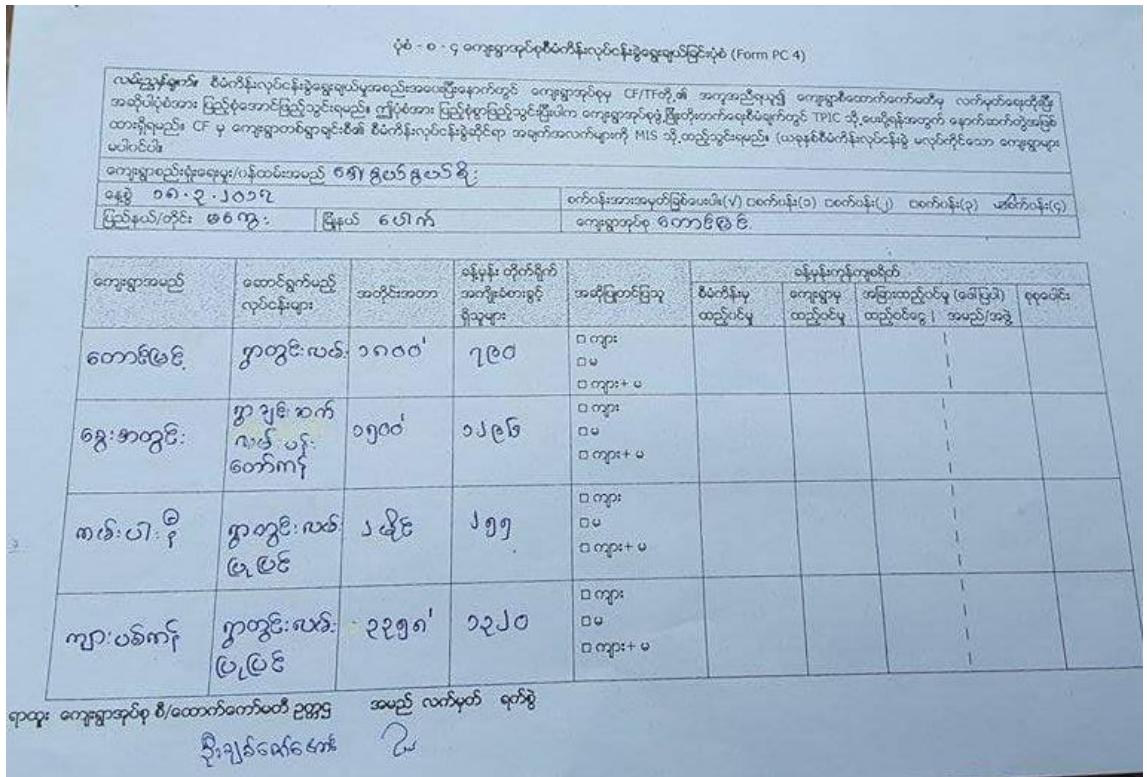 ပုံစံ - စ - ၄ ကျေးရွာအုပ်စုစီမံကိန်းလုပ်ငန်းခွဲရွေးချယ်ခြင်းပုံစံ (Form PC 4)
လမ်းညွှန်ချက်။ စီမံကိန်းလုပ်ငန်းခွဲရွေးချယ်မှုအစည်းအဝေးပြီးနောက်တွင် ကျေးရွာအုပ်စုမှ CF/TFတို့၏ အကူအညီရယူ၍ ကျေးရွာစီထောက်ကော်မတီမှ လက်မှတ်ရေးထိုးပြီး
အဆိုပါပုံစံအား ပြည့်စုံအောင်ဖြည့်သွင်းရမည်။ ဤပုံစံအား ပြည့်စုံစွာဖြည့်သွင်းပြီးပါက ကျေးရွာအုပ်စုဖွံ့ဖြိုးတိုးတက်ရေးစီမံချက်တွင် TPIC သို့ပေးပို့ရန်အတွက် နောက်ဆက်တွဲအဖြစ်
ထားရှိရမည်။ CF မှ ကျေးရွာတစ်ရွာချင်းစီ၏ စီမံကိန်းလုပ်ငန်းခွဲဆိုင်ရာ အချက်အလက်များကို MIS သို့ထည့်သွင်းရမည်။ (ယခုနှစ်စီမံကိန်းလုပ်ငန်းခွဲ မလုပ်ကိုင်သော ကျေးရွာများ
မပါဝင်ပါ။
ကျေးရွာစည်းရုံးရေးမှူး/ပန်ထမ်းအမည် ဒေါ်နွယ်နွယ်စိုး
နေ့စွဲ ၁၈.၃.၂၀၁၇ စက်ဝန်းအားအမှတ်ခြစ်ပေးပါ။(√) □စက်ဝန်း(၁) □စက်ဝန်း(၂) □စက်ဝန်း(၃) ☑စက်ဝန်း(၄)
ပြည်နယ်/တိုင်း မကွေး မြို့နယ် ပေါက် ကျေးရွာအုပ်စု တောင်မြင့်
ကျေးရွာအမည် ဆောင်ရွက်မည့် လုပ်ငန်းများ အတိုင်းအတာ ခန့်မှန်း တိုက်ရိုက် အကျိုးခံစားခွင့် ရှိသူများ အဆိုပြုတင်ပြသူ ခန့်မှန်းကုန်ကျစရိတ်
စီမံကိန်းမှ ထည့်ဝင်မှု ကျေးရွာမှ ထည့်ဝင်မှု အခြားထည့်ဝင်မှု (ဖေါ်ပြပါ) ထည့်ဝင်ငွေ | အမည်/အဖွဲ့ စုစုပေါင်း
တောင်မြင့် ရွာတွင်းလမ်း ၁၈၀၀' ၇၉၀ □ ကျား
□ မ
□ ကျား+ မ
ရွာချင်းဆက် ၁၅၀၀' ၁၂၉၆ □ ကျား
□ မ
□ ကျား+ မ
ရွာတွင်းလမ်း ၂မိုင် ၂၅၅ □ ကျား
ပြုပြင် □ မ
□ ကျား+ မ
ကျားပစ်ကန် ရွာတွင်းလမ်း ၃၃၅၈' ၁၃၂၀ □ ကျား
ပြုပြင် □ မ
□ ကျား+ မ
ရာထူး ကျေးရွာအုပ်စု စီ/ထောက်ကော်မတီ ဥက္ကဌ အမည် လက်မှတ် ရက်စွဲ